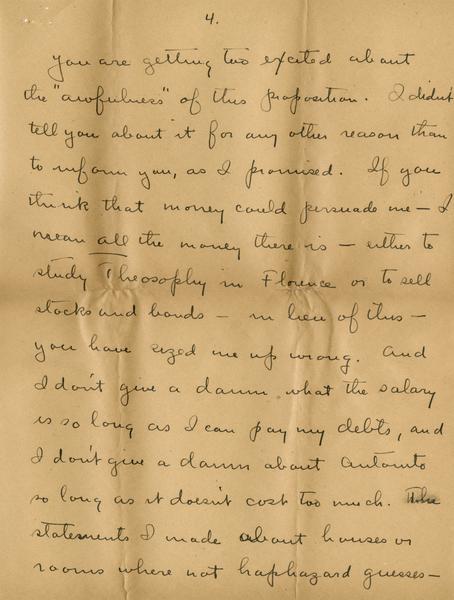 4.
you are getting too excited about
the "awfulness" of this proposition. I didn't
tell you about it for any other reason than
to inform you, as I promised. If you
think that money could persuade me — I
mean all the money there is — either to
study Theosophy in Florence or to sell
stocks and bonds — in lieu of this —
you have sized me up wrong. And
I don't give a damn what the salary
is so long as I can pay my debts, and
I don't give a damn about
so long as it doesn't cost too much. The
statements I made about houses or
rooms where not haphazard guesses —